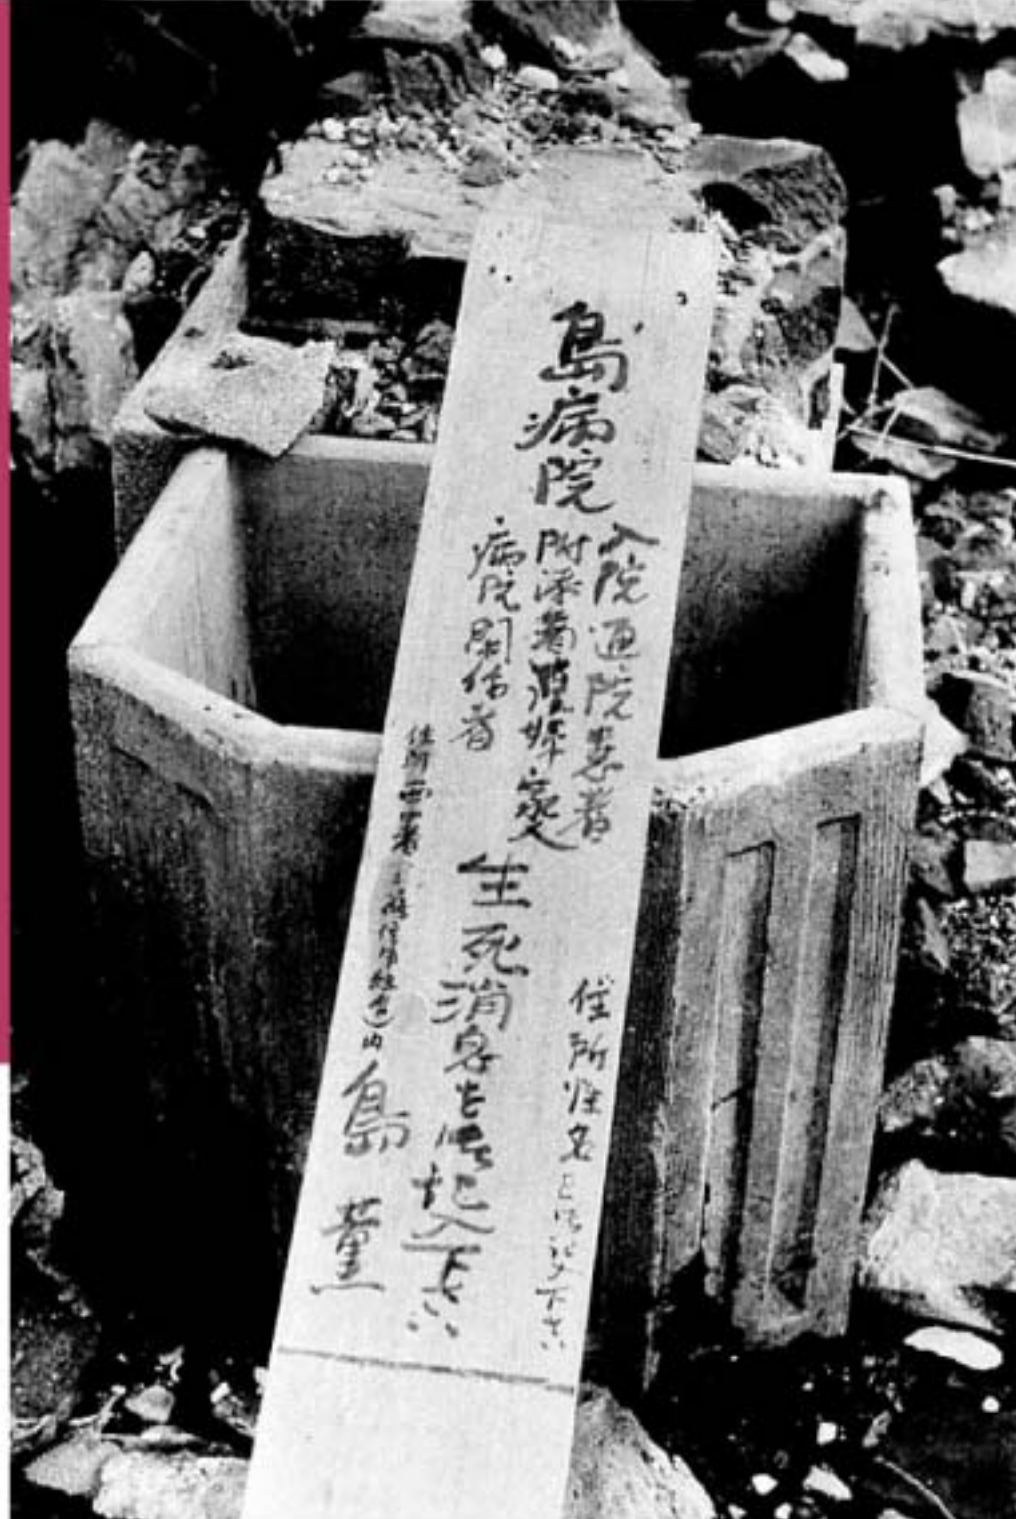 島病院
入院通院患者
附添者看護婦家人
病院関係者
生死消息ヲ御記入下さい
住所姓名
下さい
住所
島薫